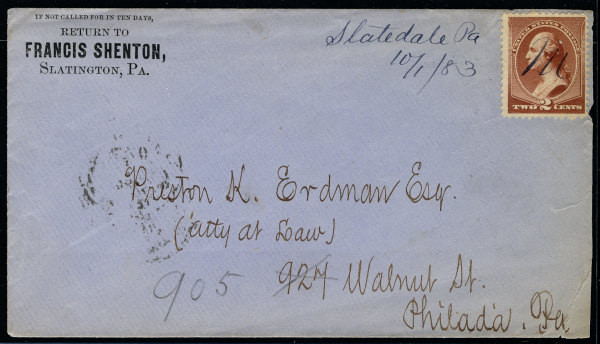 IF NOT CALLED FOR IN TEN DAYS,
RETURN TO
FRANCIS SHENTON,
SLATINGTON, PA.
Slatedale Pa
10/1/83
UNITED STATES POSTAGE
TWO 2 CENTS
Preston K. Erdman Esq.
(Atty at Law)
905 927 Walnut St.
Philada. Pa